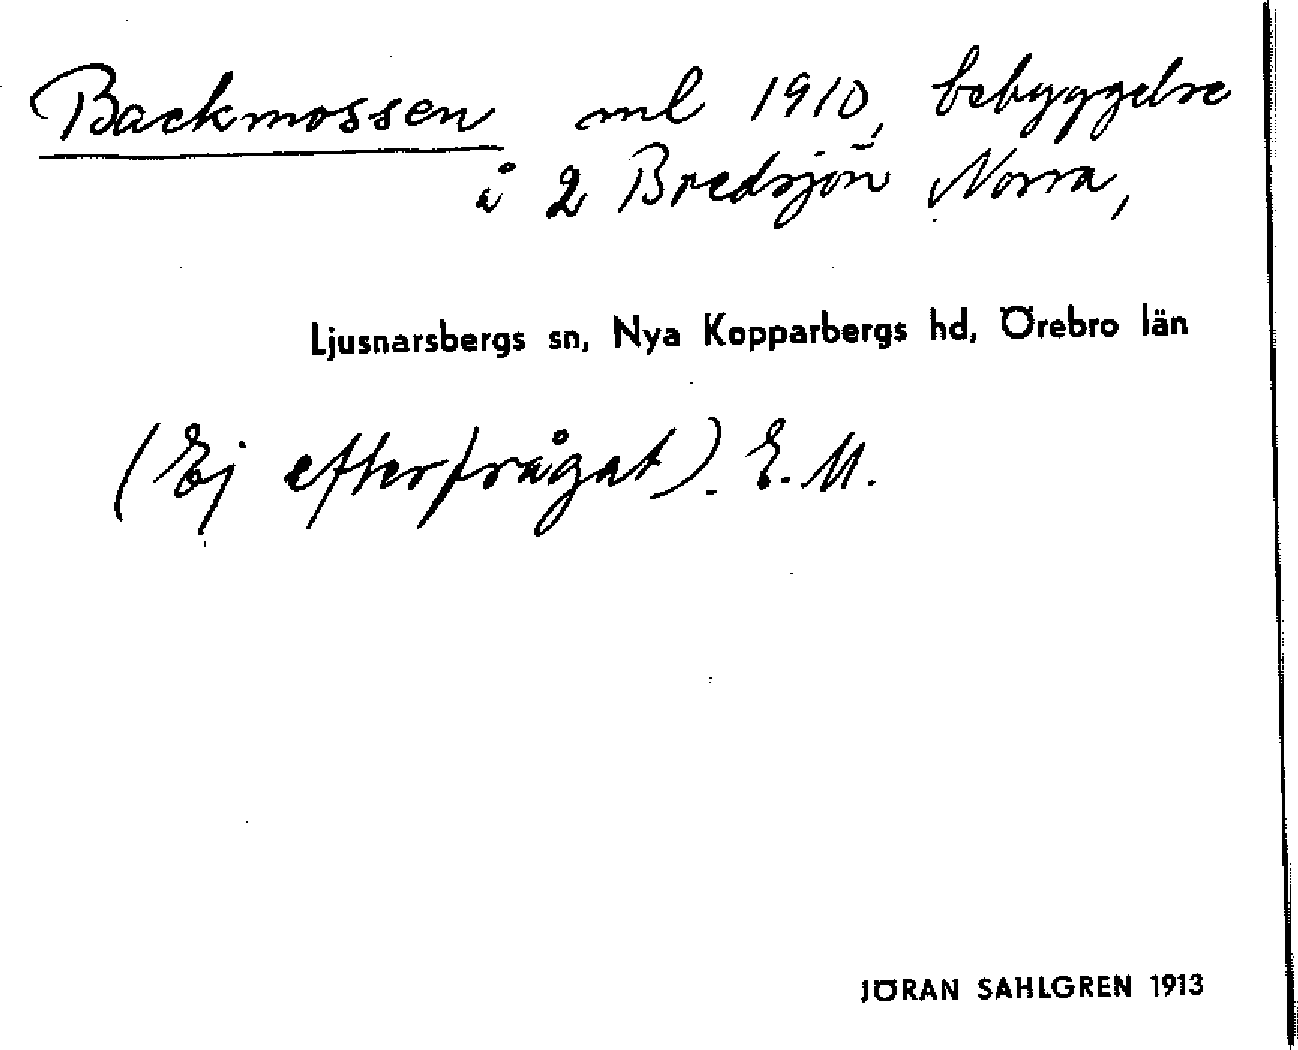 Backmossen ml 1910, bebyggelse
å 2 Bredsjön Norra,
Ljusnarsbergs sn, Nya Kopparbergs hd, Örebro län
(Ej efterfrågat). E. M.
JÖRAN SAHLGREN 1913